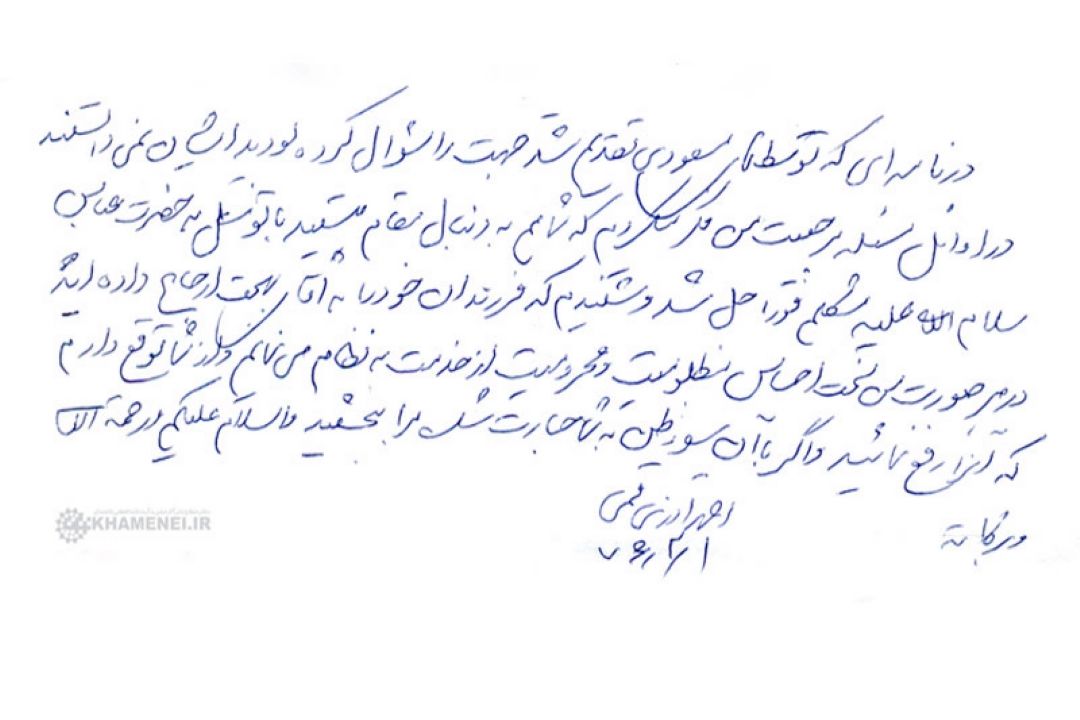 در نامه ای که توسط آقای مسعودی تقدیم شد جهت را سؤال کرده بودید ایشان نمی دانستند
در اوائل مسئله مرجعیت من فکر می کردم که شما هم به دنبال مقام هستید با توسل به حضرت عباس
سلام الله علیه مشکلم فوراً حل شد و شنیدم که فرزندان خود را به آقای بهجت ارجاع داده اید
در هر صورت من تحت احساس مظلومیت و محرومیت از خدمت به نظام می نمایم و از شما توقع دارم
که آنرا رفع نمائید و اگر با آن سوء ظن به شما جسارت شد مرا ببخشید والسلام علیکم ورحمة الله
وبرکاته
احمد آذری قمی
KHAMENEI.IR